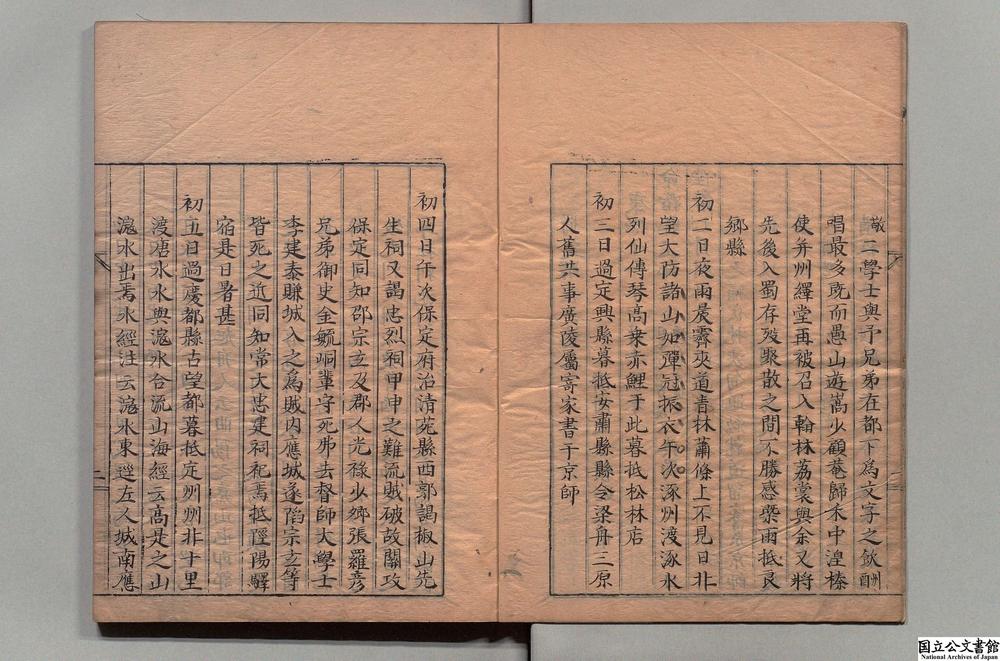 敬二學士與予兄弟在都下爲文字之飲酬
唱最多旣而愚山遊嵩少顧菴歸禾中湟榛
使并州繹堂再被召入翰林荔裳與余又將
先後入蜀存歿聚散之間不勝感槩雨抵良
鄉縣
初二日夜雨晨霽夾道青林蕭條上不見日非
望大防諸山如彈冠振衣午次涿州渡涿水
列仙傳琴高乗赤鯉于此暮抵松林店
初三日過定興縣暮抵安肅縣縣令梁舟三原
人舊共事廣陵屬寄家書于京師
初四日午次保定府治清苑縣西郭謁椒山先
生祠又謁忠烈祠甲申之難流賊破故關攻
保定同知邵宗玄及郡人光祿少卿張羅彦
兄弟御史金毓峒輩守死弗去督師大學士
李建泰賺城入之爲賊內應城遂陷宗玄等
皆死之近同知常大忠建祠祀焉抵陘陽驛
宿是日暑甚
初五日過慶都縣古望都暮抵定州州非十里
渡唐水水與滱水合流山海經云高是之山
滱水出焉水經注云滱水東逕左人城南應
国立公文書館
National Archives of Japan